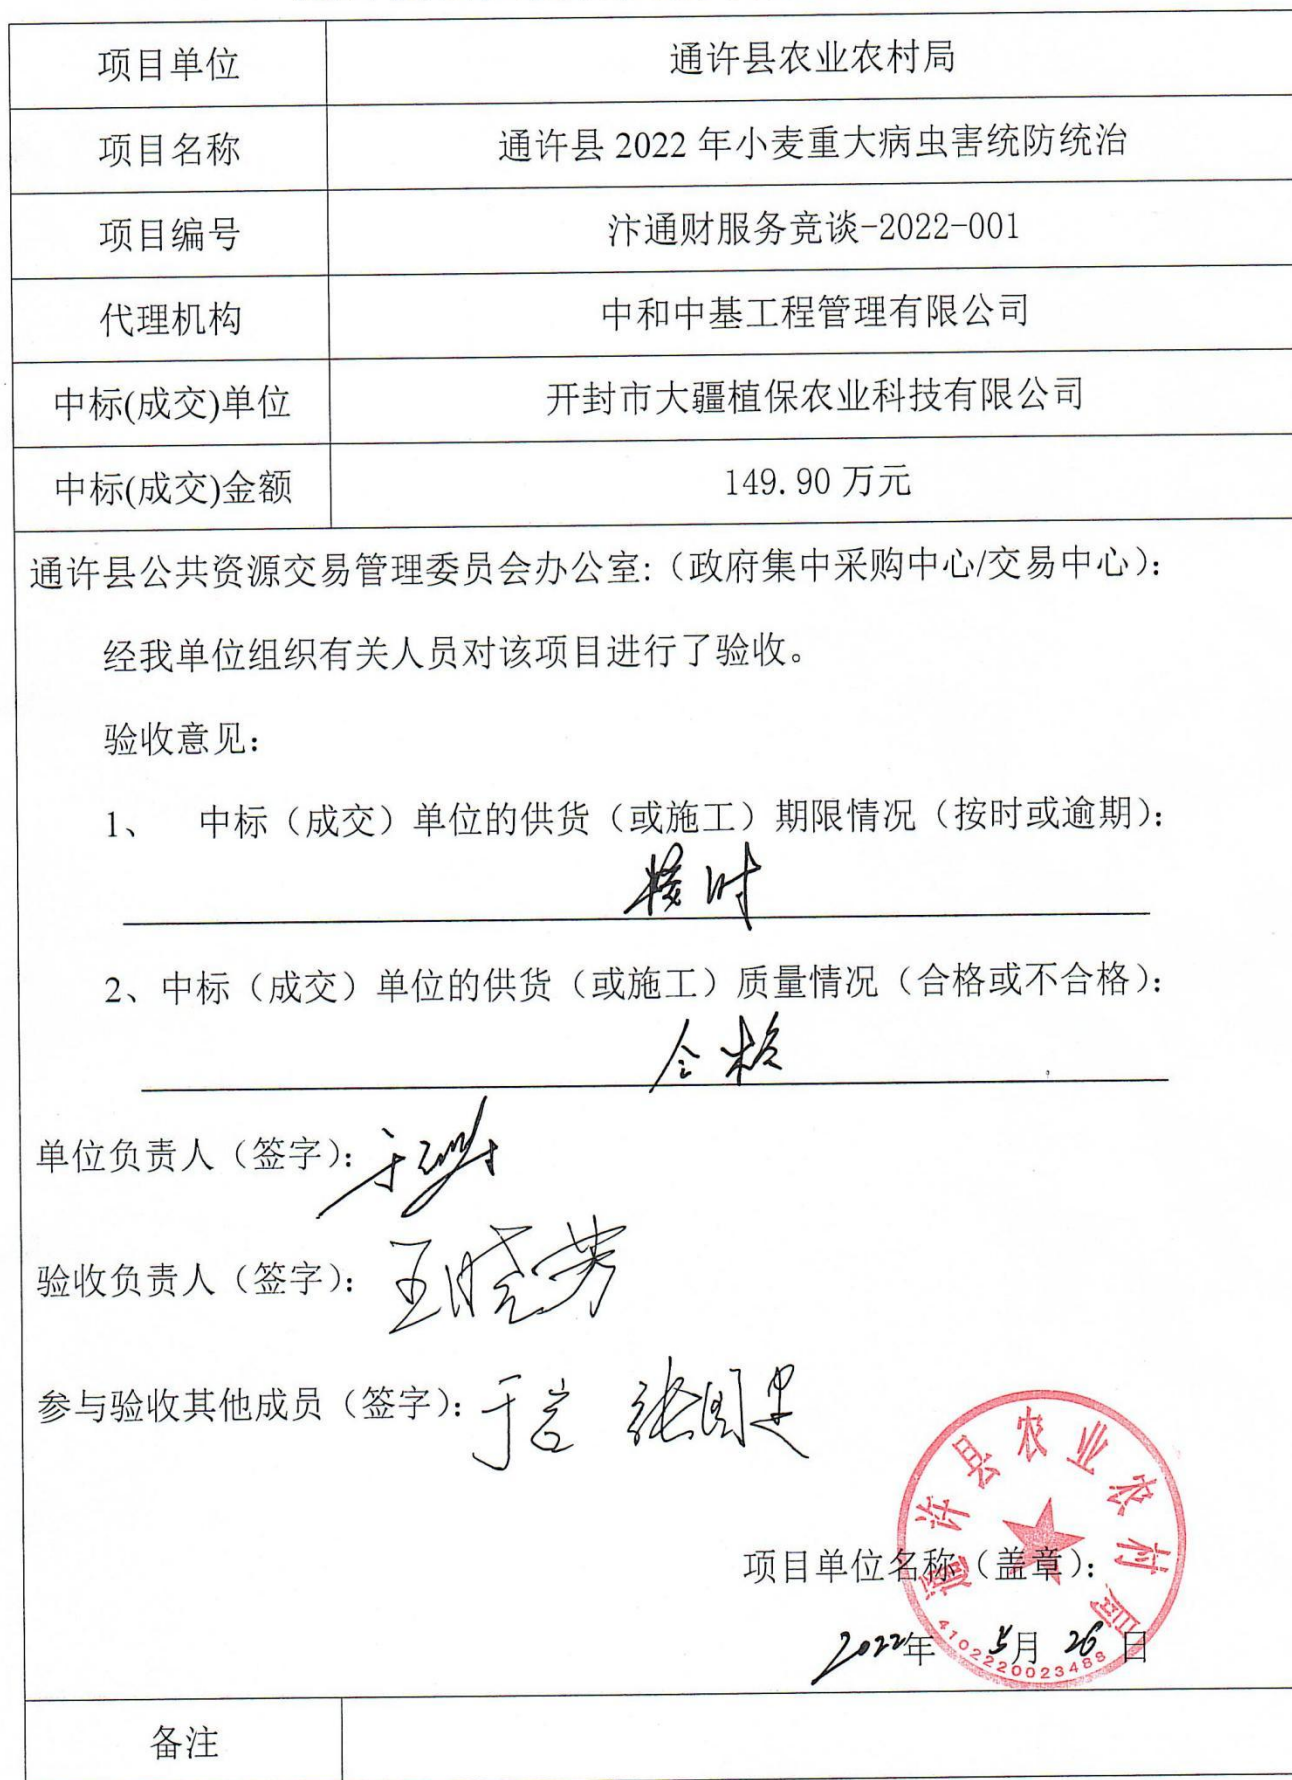 项目单位 通许县农业农村局
项目名称 通许县 2022 年小麦重大病虫害统防统治
项目编号 汴通财服务竞谈-2022-001
代理机构 中和中基工程管理有限公司
中标(成交)单位 开封市大疆植保农业科技有限公司
中标(成交)金额 149.90 万元
通许县公共资源交易管理委员会办公室:（政府集中采购中心/交易中心）：
经我单位组织有关人员对该项目进行了验收。
验收意见：
1、 中标（成交）单位的供货（或施工）期限情况（按时或逾期）：
按时
2、中标（成交）单位的供货（或施工）质量情况（合格或不合格）：
合格
单位负责人（签字）：
验收负责人（签字）：王晓芳
参与验收其他成员（签字）：
通许县农业农村局
项目单位名称（盖章）：
2022年 5月 26日
4102220023488
备注